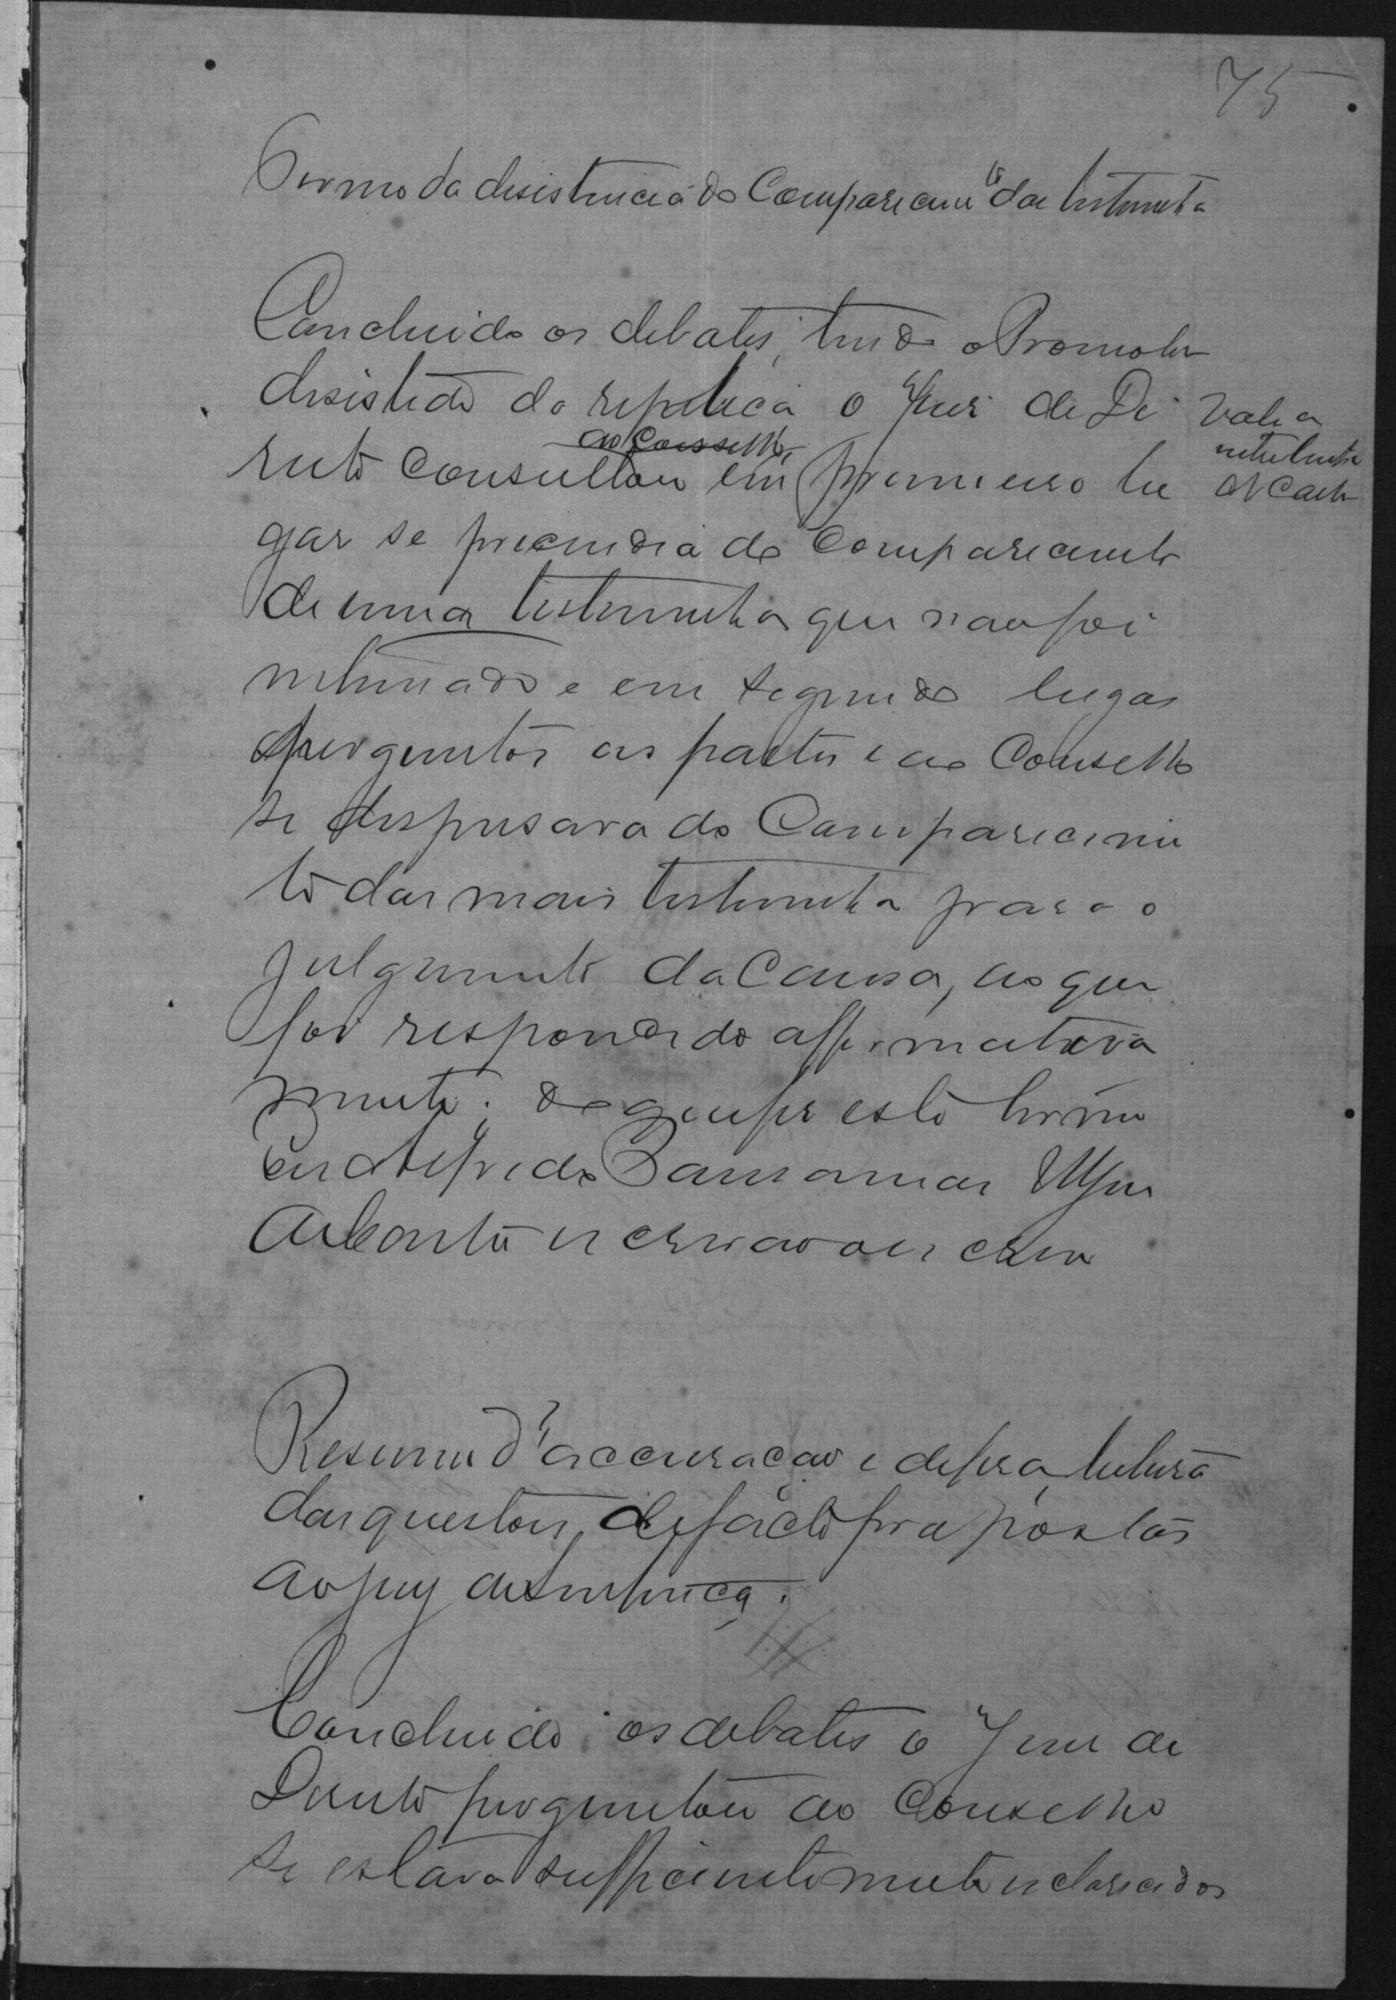 75
Termo da desistencia do Comparecimto das testemunhas
Concluido os debates, tendo o Promotor
desistido da replica o Juiz de Di
reito consultou em primeiro lu
ao Conselho,
Vale a
entrelinha
gar se prescindia do Comparecimento
de uma testemunha que não foi
intimado e em segundo lugar
perguntou as partes e ao Conselho
se dispensava do Comparecimen
to das mais testemunhas para o
julgamento da Causa, ao que
foi respondido affirmativa
mente; do que fiz este termo
Eu Alfredo
escrivão o escrevi
Resumo d'accusação e defesa, leitura
das questões de facto propostas
ao jury de sentença.
Concluido os debates o Juiz de
Direito perguntou ao Conselho
se estava sufficientemente esclarecidos